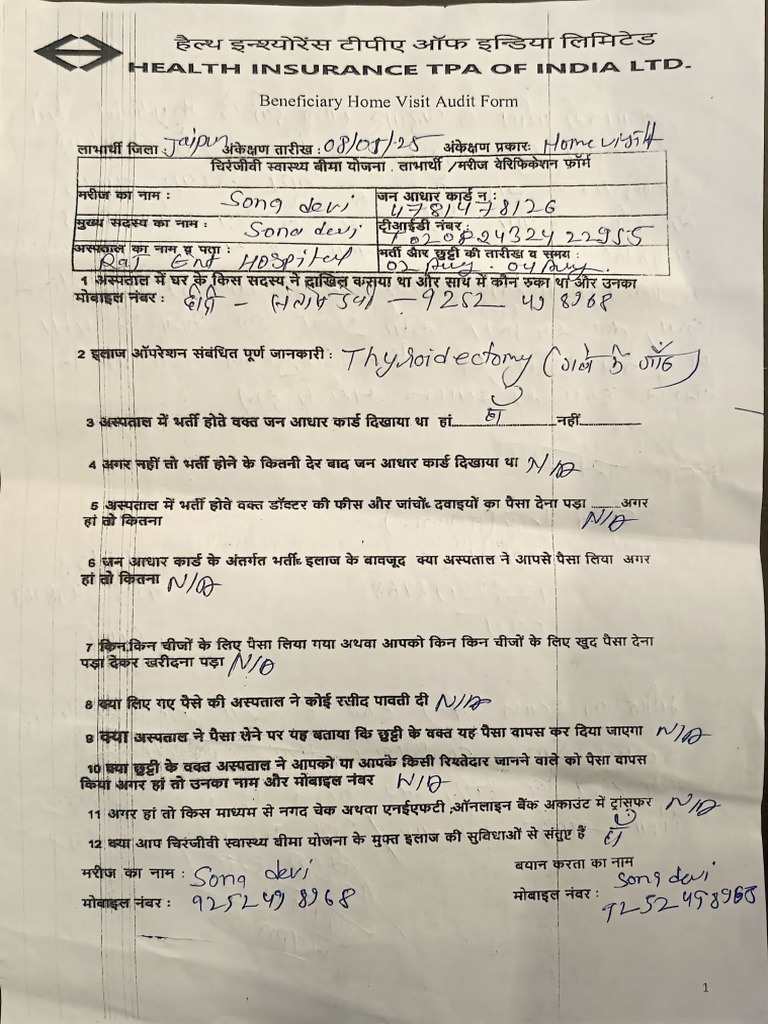 हैल्थ इन्श्योरेंस टीपीए ऑफ इन्डिया लिमिटेड
HEALTH INSURANCE TPA OF INDIA LTD.
Beneficiary Home Visit Audit Form
लाभार्थी जिला : Jaipur अंकेक्षण तारीख : 08/01/25 अंकेक्षण प्रकार: Home visit
चिरंजीवी स्वास्थ्य बीमा योजना . लाभार्थी /मरीज वेरिफिकेशन फ़ॉर्म
मरीज का नाम : Song devi जन आधार कार्ड न :
4781478126
मुख्य सदस्य का नाम : Song devi टीआईडी नंबर :
T020824324 22955
अस्पताल का नाम व पता : भर्ती और छुट्टी की तारीख व समय :
Raj Ent Hospital 02 Aug. 04 Aug.
1 अस्पताल में घर के किस सदस्य ने दाखिल कराया था और साथ में कौन रुका था और उनका
मोबाइल नंबर : - 9252 498968
2 इलाज ऑपरेशन संबंधित पूर्ण जानकारी : Thyroidectomy (गले की गाँठ)
3 अस्पताल में भर्ती होते वक्त जन आधार कार्ड दिखाया था हां हाँ नहीं
4 अगर नहीं तो भर्ती होने के कितनी देर बाद जन आधार कार्ड दिखाया था N/A
5 अस्पताल में भर्ती होते वक्त डॉक्टर की फीस और जांचों- दवाइयों का पैसा देना पड़ा ......अगर
हां तो कितना N/A
6 जन आधार कार्ड के अंतर्गत भर्ती- इलाज के बावजूद क्या अस्पताल ने आपसे पैसा लिया अगर
हां तो कितना N/A
7 किन,किन चीजों के लिए पैसा लिया गया अथवा आपको किन किन चीजों के लिए खुद पैसा देना
पड़ा देकर खरीदना पड़ा N/A
8 क्या लिए गए पैसे की अस्पताल ने कोई रसीद पावती दी N/A
9 क्या अस्पताल ने पैसा लेने पर यह बताया कि छुट्टी के वक्त यह पैसा वापस कर दिया जाएगा N/A
10 क्या छुट्टी के वक्त अस्पताल ने आपको या आपके किसी रिश्तेदार जानने वाले को पैसा वापस
किया अगर हां तो उनका नाम और मोबाइल नंबर N/A
11 अगर हां तो किस माध्यम से नगद चेक अथवा एनईएफटी ,ऑनलाइन बैंक अकाउंट में ट्रांसफर N/A
12 क्या आप चिरंजीवी स्वास्थ्य बीमा योजना के मुफ्त इलाज की सुविधाओं से संतुष्ट हैं हाँ
मरीज का नाम : Song devi बयान करता का नाम
Song devi
मोबाइल नंबर : 9252498968 मोबाइल नंबर : 9252498968
1